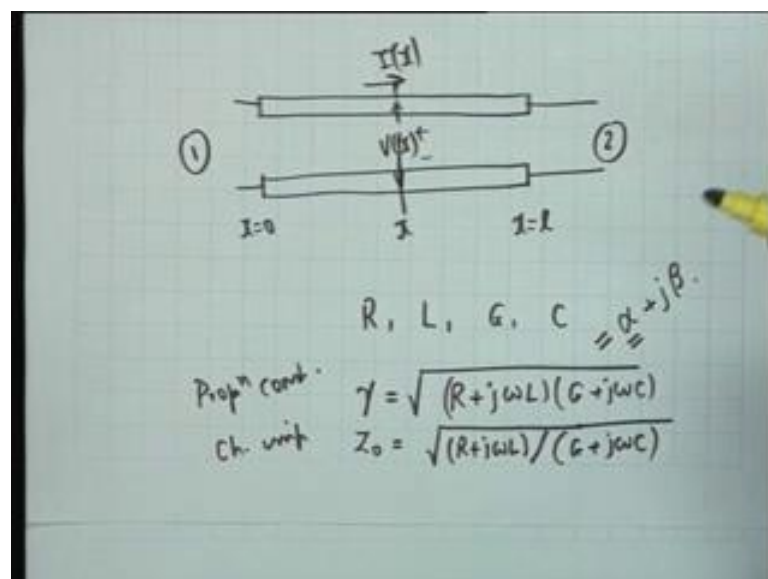 I(x)
① V(x) + - ②
x=0 x x=l
R, L, G, C = α + jβ.
Propⁿ const. γ = √(R+jωL)(G+jωC)
Ch. imp Z₀ = √(R+jωL)/(G+jωC)